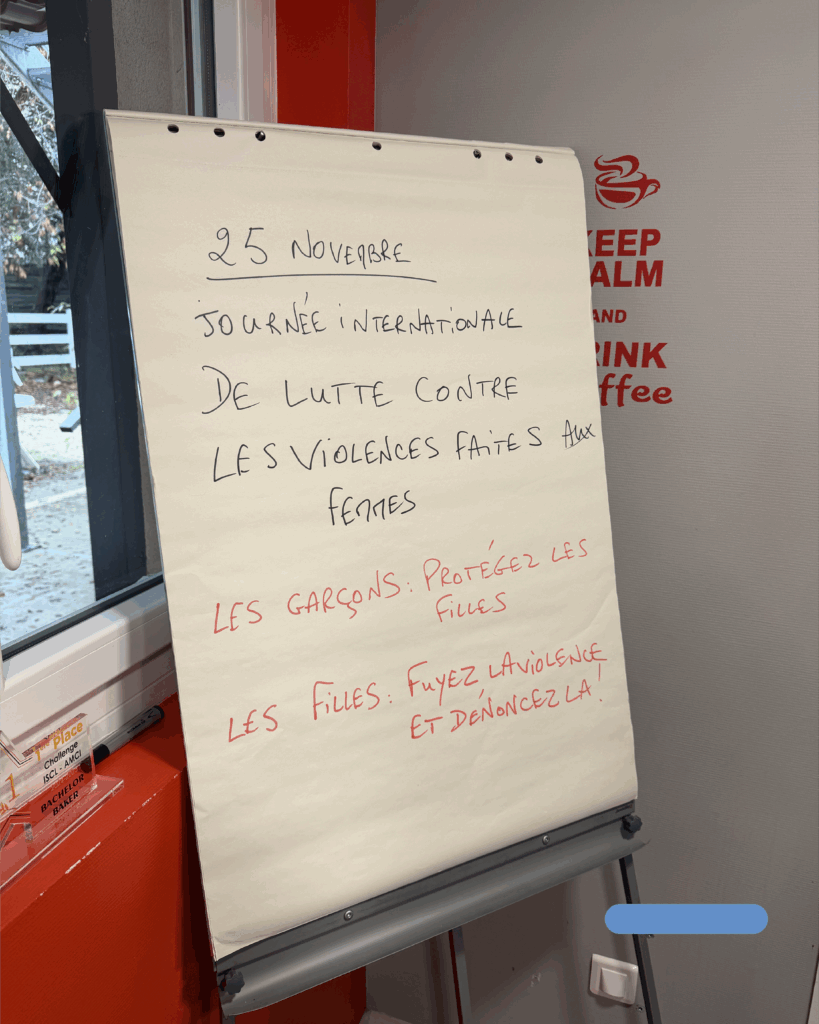 25 NOVEMBRE
JOURNÉE INTERNATIONALE
DE LUTTE CONTRE
LES VIOLENCES FAITES AUX
FEMMES
LES GARÇONS: PROTÉGEZ LES
FILLES
LES FILLES: FUYEZ LA VIOLENCE
ET DÉNONCEZ LA!
KEEP
ALM
AND
RINK
ffee
1
Place
Challenge
ISCL - AMCI
BACHELOR
BAKER